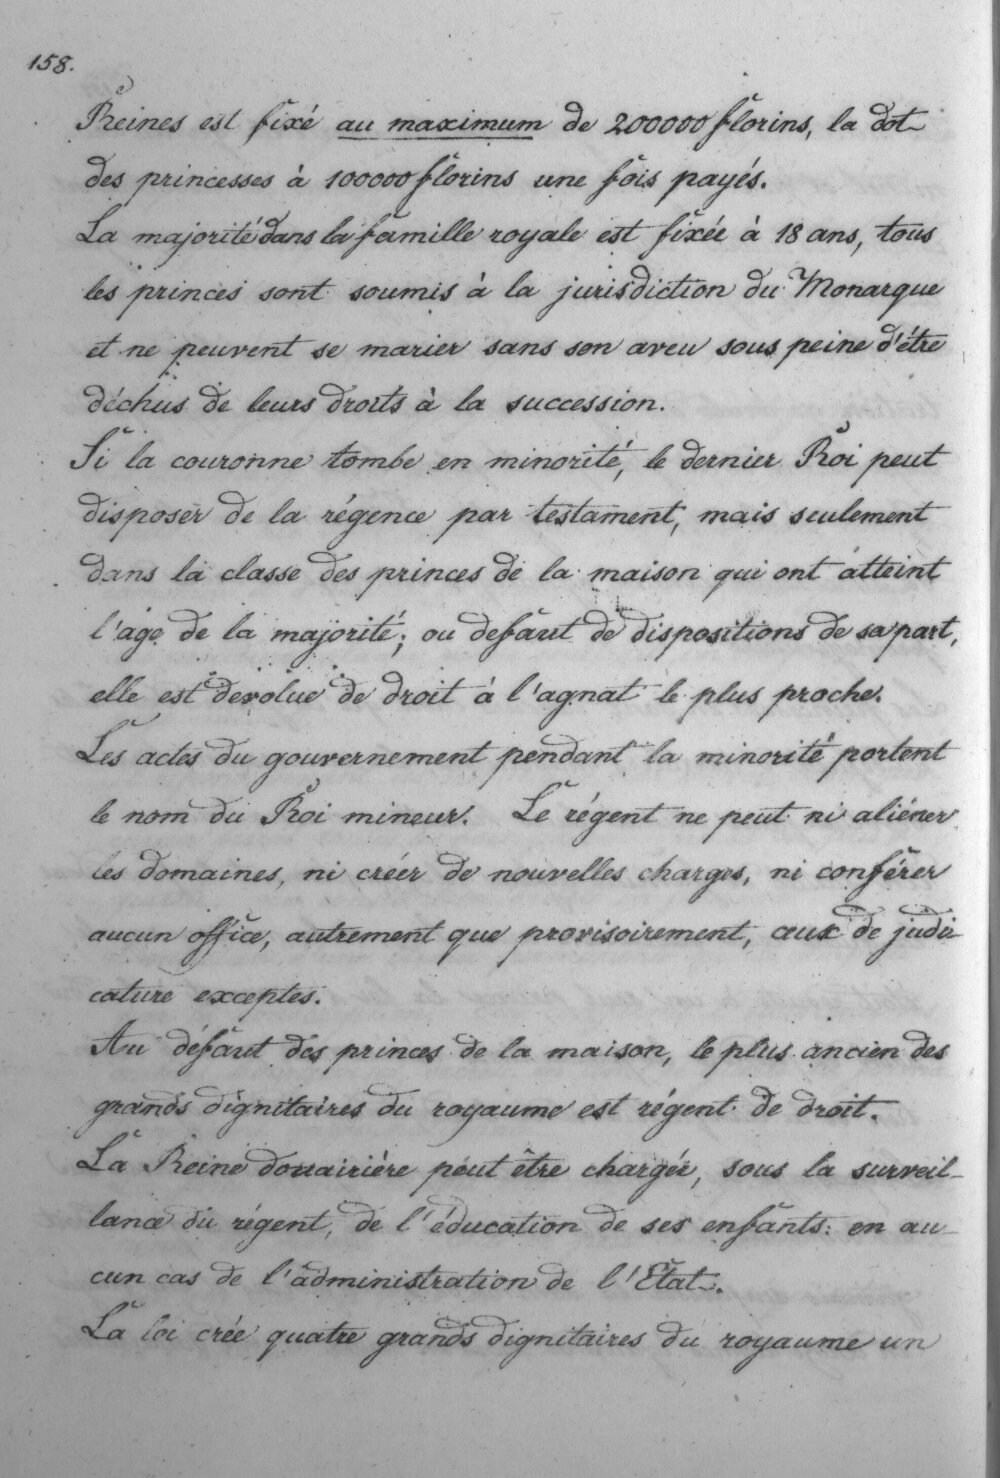 158.
Reines est fixé au maximum de 200000 florins, la dot
des princesses à 100000 florins une fois payés.
La majorité dans la famille royale est fixée à 18 ans, tous
les princes sont soumis à la jurisdiction du Monarque
et ne peuvent se marier sans son aveu sous peine d'être
déchus de leurs droits à la succession.
Si la couronne tombe en minorité, le dernier Roi peut
disposer de la régence par testament, mais seulement
dans la classe des princes de la maison qui ont atteint
l'age de la majorité; ou defaut de dispositions de sa part,
elle est devolue de droit à l'agnat le plus proche.
Les actes du gouvernement pendant la minorité portent
le nom du Roi mineur. Le régent ne peut ni aliéner
les domaines, ni créer de nouvelles charges, ni conférer
aucun office, autrement que provisoirement, ceux de judi-
cature exceptes.
Au défaut des princes de la maison, le plus ancien des
grands dignitaires du royaume est régent de droit.
La Reine douairière peut être chargée, sous la surveil-
lance du régent, de l'éducation de ses enfants: en au-
cun cas de l'administration de l'Etat.
La loi crée quatre grands dignitaires du royaume un